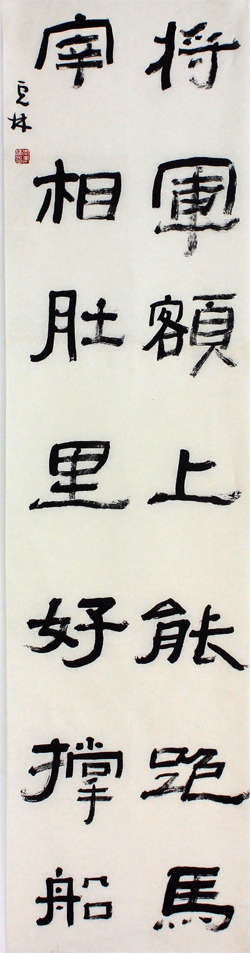 将軍額上能跑馬
宰相肚里好撑船
克林